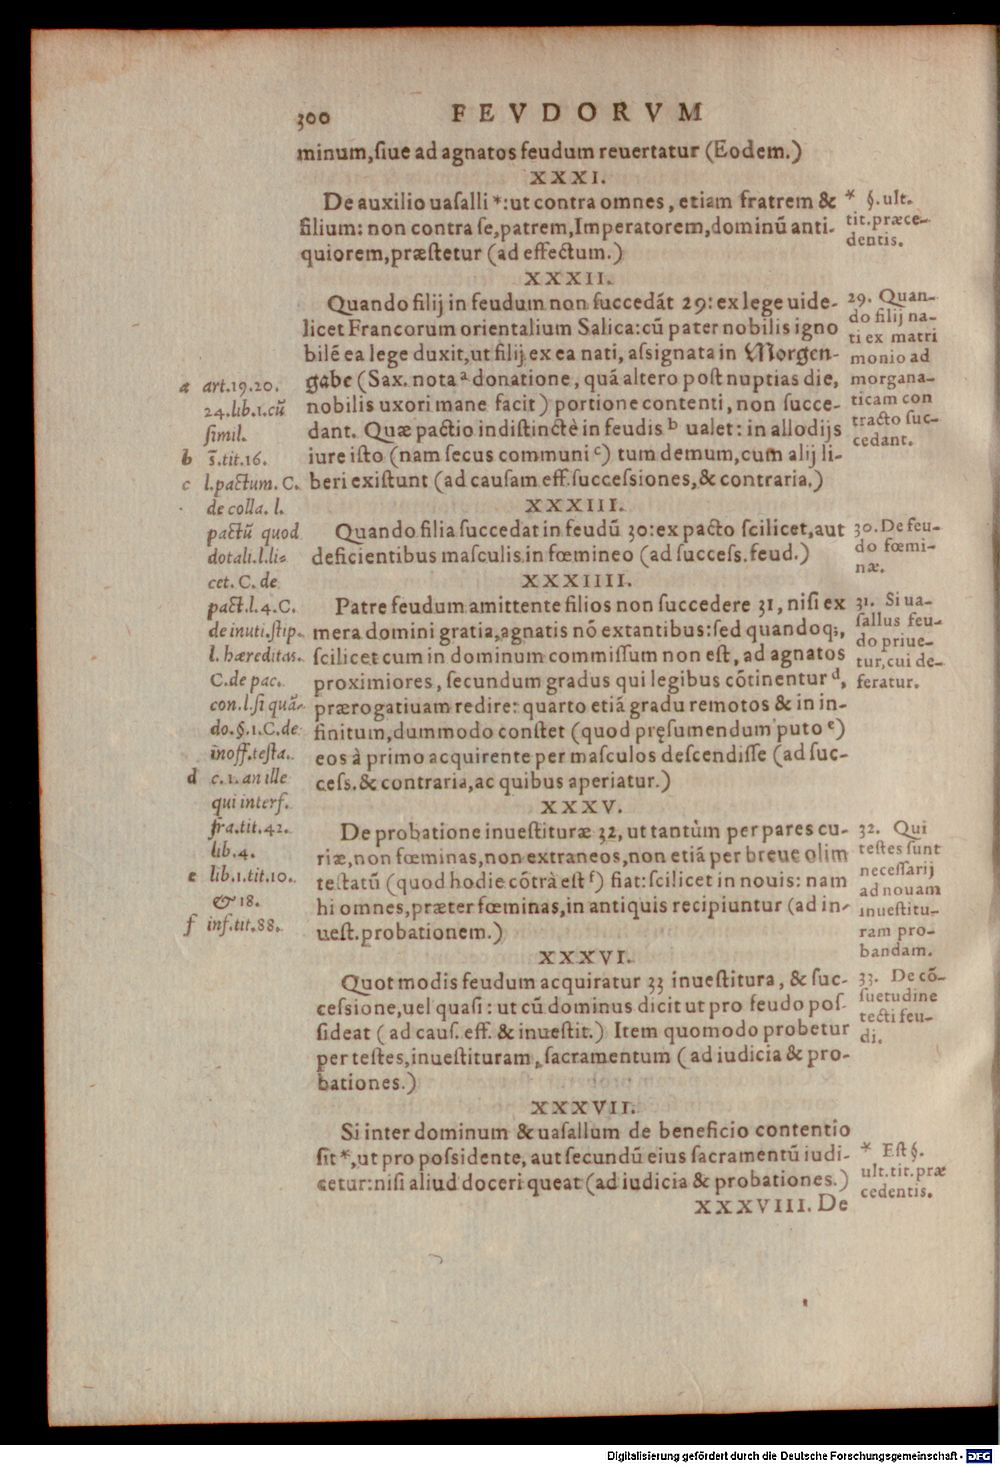 300 FEVDORVM
minum, ſiue ad agnatos feudum reuertatur (Eodem.)
XXXI.
De auxilio uaſalli *: ut contra omnes, etiam fratrem &
filium: non contra ſe, patrem, Imperatorem, dominũ anti-
quiorem, præſtetur (ad effectum.)
* §. ult.
tit. præce-
dentis.
XXXII.
Quando filij in feudum non ſuccedãt 29: ex lege uide-
licet Francorum orientalium Salica: cũ pater nobilis igno
bilẽ ea lege duxit, ut filij ex ea nati, aſsignata in Morgen-
gabe (Sax. nota ᵃ donatione, quã altero poſt nuptias die,
nobilis uxori mane facit) portione contenti, non ſucce-
dant. Quæ pactio indiſtinctè in feudis ᵇ ualet: in allodijs
iure iſto (nam ſecus communi ᶜ) tum demum, cum alij li-
beri exiſtunt (ad cauſam eff. ſucceſsiones, & contraria.)
29. Quan-
do filij na-
ti ex matri
monio ad
morgana-
ticam con
tracto ſuc-
cedant.
a art. 19. 20.
24. lib. 1. cũ
ſimil.
b s̃. tit. 16.
c l. pactum. C.
de colla. l.
pactũ quod
dotali. l. li-
cet. C. de
pact. l. 4. C.
de inuti. ſtip.
l. hæreditas.
C. de pac.
con. l. ſi quã-
do. §. 1. C. de
inoff. teſta.
d c. 1. an ille
qui interf.
fra. tit. 42.
lib. 4.
e lib. 1. tit. 10.
& 18.
f inf. tit. 88.
XXXIII.
Quando filia ſuccedat in feudũ 30: ex pacto ſcilicet, aut
deficientibus maſculis in fœmineo (ad ſucceſs. feud.)
30. De feu-
do fœmi-
næ.
XXXIIII.
Patre feudum amittente filios non ſuccedere 31, niſi ex
mera domini gratia, agnatis nõ extantibus: ſed quandoq;,
ſcilicet cum in dominum commiſſum non eſt, ad agnatos
proximiores, ſecundum gradus qui legibus cõtinentur ᵈ,
prærogatiuam redire: quarto etiã gradu remotos & in in-
finitum, dummodo conſtet (quod pręſumendum puto ᵉ)
eos à primo acquirente per maſculos deſcendiſſe (ad ſuc-
ceſs. & contraria, ac quibus aperiatur.)
31. Si ua-
ſallus feu-
do priue-
tur, cui de-
feratur.
XXXV.
De probatione inueſtituræ 32, ut tantùm per pares cu-
riæ, non fœminas, non extraneos, non etiã per breue olim
teſtatũ (quod hodie cõtrà eſt ᶠ) fiat: ſcilicet in nouis: nam
hi omnes, præter fœminas, in antiquis recipiuntur (ad in-
ueſt. probationem.)
32. Qui
teſtes ſunt
neceſſarij
ad nouam
inueſtitu-
ram pro-
bandam.
XXXVI.
Quot modis feudum acquiratur 33 inueſtitura, & ſuc-
ceſsione, uel quaſi: ut cũ dominus dicit ut pro feudo poſ-
ſideat (ad cauſ. eff. & inueſtit.) Item quomodo probetur
per teſtes, inueſtituram, ſacramentum (ad iudicia & pro-
bationes.)
33. De cõ-
ſuetudine
tecti feu-
di.
XXXVII.
Si inter dominum & uaſallum de beneficio contentio
ſit *, ut pro poſsidente, aut ſecundũ eius ſacramentũ iudi-
cetur: niſi aliud doceri queat (ad iudicia & probationes.)
* Eſt §.
ult. tit. præ
cedentis.
XXXVIII. De
Digitalisierung gefördert durch die Deutsche Forschungsgemeinschaft - DFG